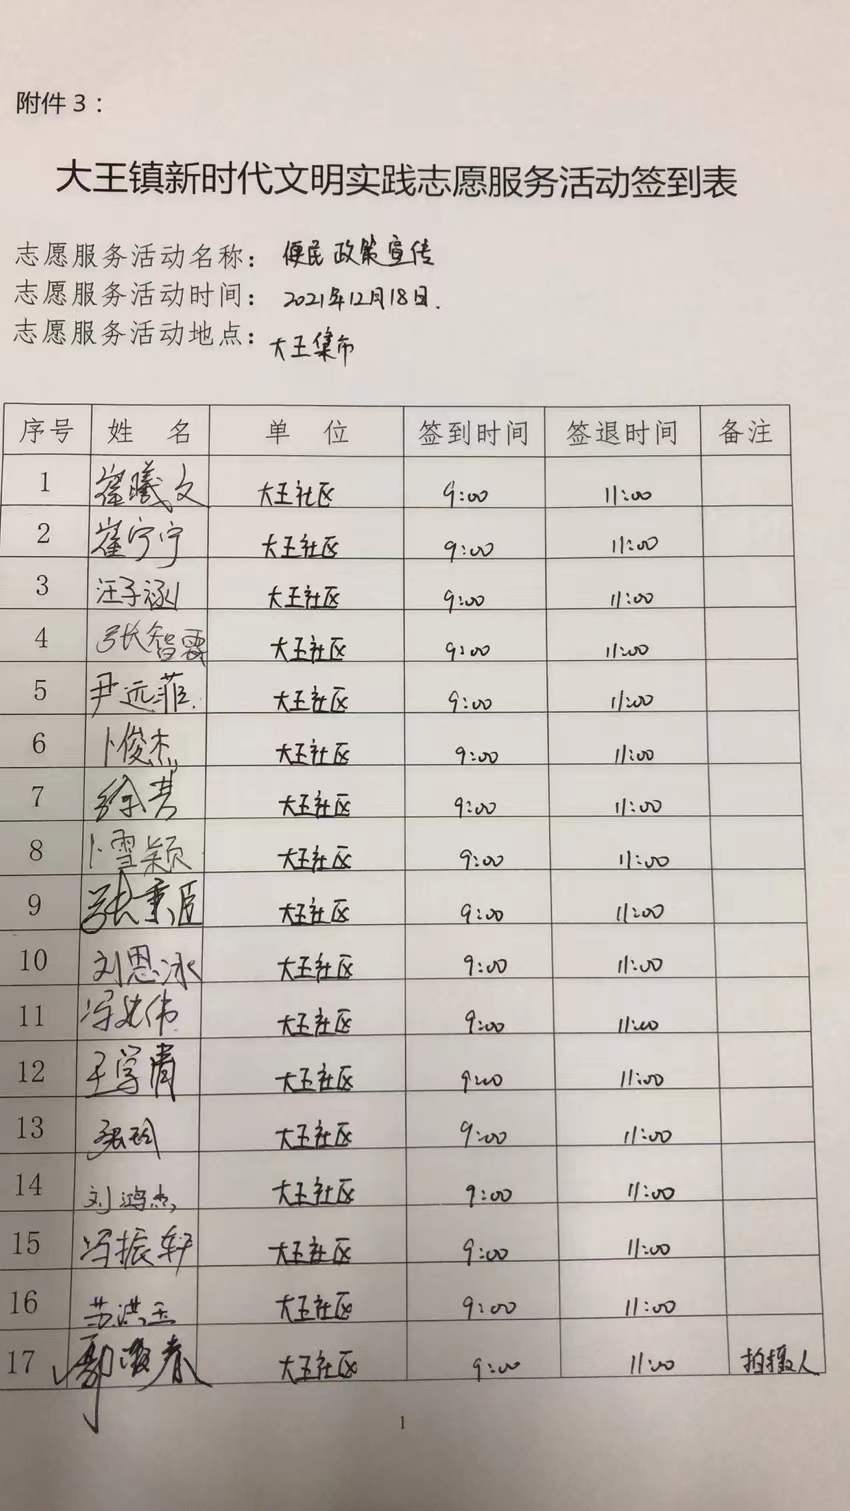 附件3：
大王镇新时代文明实践志愿服务活动签到表
志愿服务活动名称：便民政策宣传
志愿服务活动时间：2021年12月18日.
志愿服务活动地点：大王集市
序号 姓名 单位 签到时间 签退时间 备注
1 崔曦文 大王社区 9:00 11:00
2 崔宁宁 大王社区 9:00 11:00
3 汪子涵 大王社区 9:00 11:00
4 张智霖 大王社区 9:00 11:00
5 尹远菲 大王社区 9:00 11:00
6 卜俊杰 大王社区 9:00 11:00
7 徐 大王社区 9:00 11:00
8 卜雪颖 大王社区 9:00 11:00
9 张秉臣 大王社区 9:00 11:00
10 刘恩冰 大王社区 9:00 11:00
11 伟 大王社区 9:00 11:00
12 王学青 大王社区 9:00 11:00
13 张 大王社区 9:00 11:00
14 刘鸿杰 大王社区 9:00 11:00
15 冯振轩 大王社区 9:00 11:00
16 苏洪玉 大王社区 9:00 11:00
17 郭春 大王社区 9:00 11:00 拍摄人
1